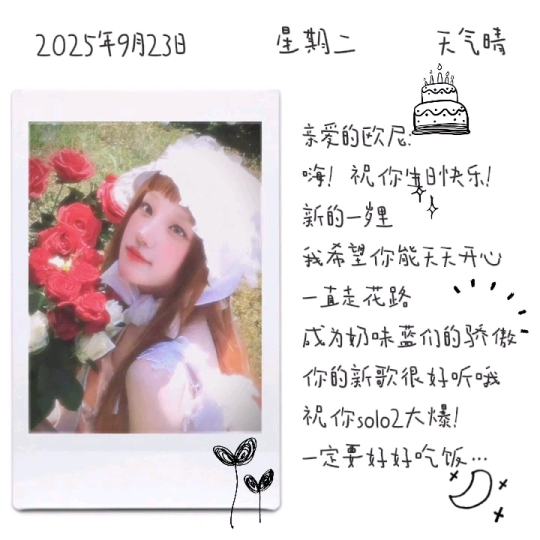 2025年9月23日 星期二 天气晴
亲爱的欧尼:
嗨！祝你生日快乐！
新的一岁里
我希望你能天天开心
一直走花路
成为奶味蓝们的骄傲
你的新歌很好听哦
祝你solo2大爆！
一定要好好吃饭…